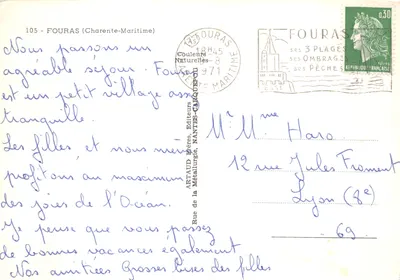 105 - FOURAS (Charente-Maritime)
Nous passons un
agréable séjour. Fouras
est un petit village assez
tranquille.
Les filles, et nous même
profitons au maximum
des joies de l'Océan.
Je pense que vous passez
de bonnes vacances également
Nos amitiées Grosses bises des filles
Couleurs
Naturelles
ARTAUD Frères, Editeurs
Rue de la Métallurgie, NANTES-CARQUEFOU
17 FOURAS
18H45
1971
CHTE MARITIME
FOURAS
SES 3 PLAGES
SES OMBRAGES
SES PÊCHES
0,30
REPUBLIQUE FRANÇAISE
Mr Mme Haro
12 rue Jules Froment
Lyon (8e)
69